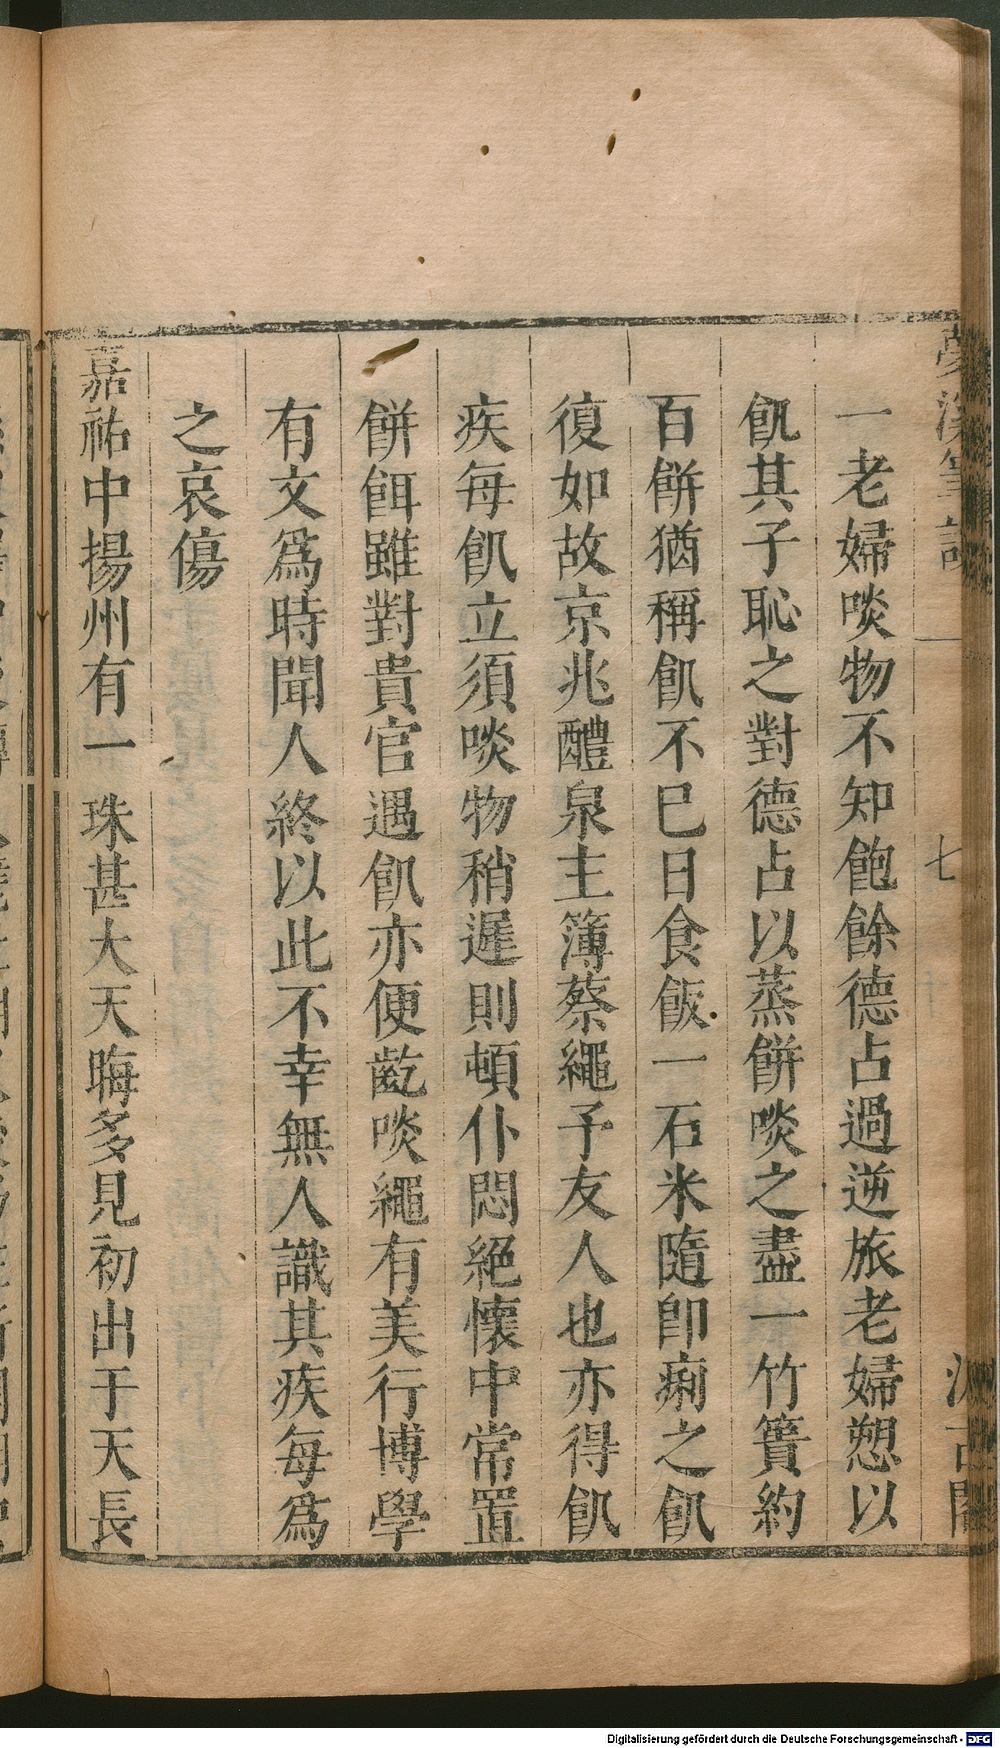 一老婦啖物不知飽餘德占過逆旅老婦愬以
飢其子恥之對德占以蒸餅啖之盡一竹簣約
百餅猶稱飢不巳日食飯一石米隨即痢之飢
復如故京兆醴泉主簿蔡繩予友人也亦得飢
疾每飢立須啖物稍遲則頓仆悶絕懷中常置
餅餌雖對貴官遇飢亦便齕啖繩有美行博學
有文爲時聞人終以此不幸無人識其疾每爲
之哀傷
嘉祐中揚州有一珠甚大天晦多見初出于天長
Digitalisierung gefördert durch die Deutsche Forschungsgemeinschaft - DFG